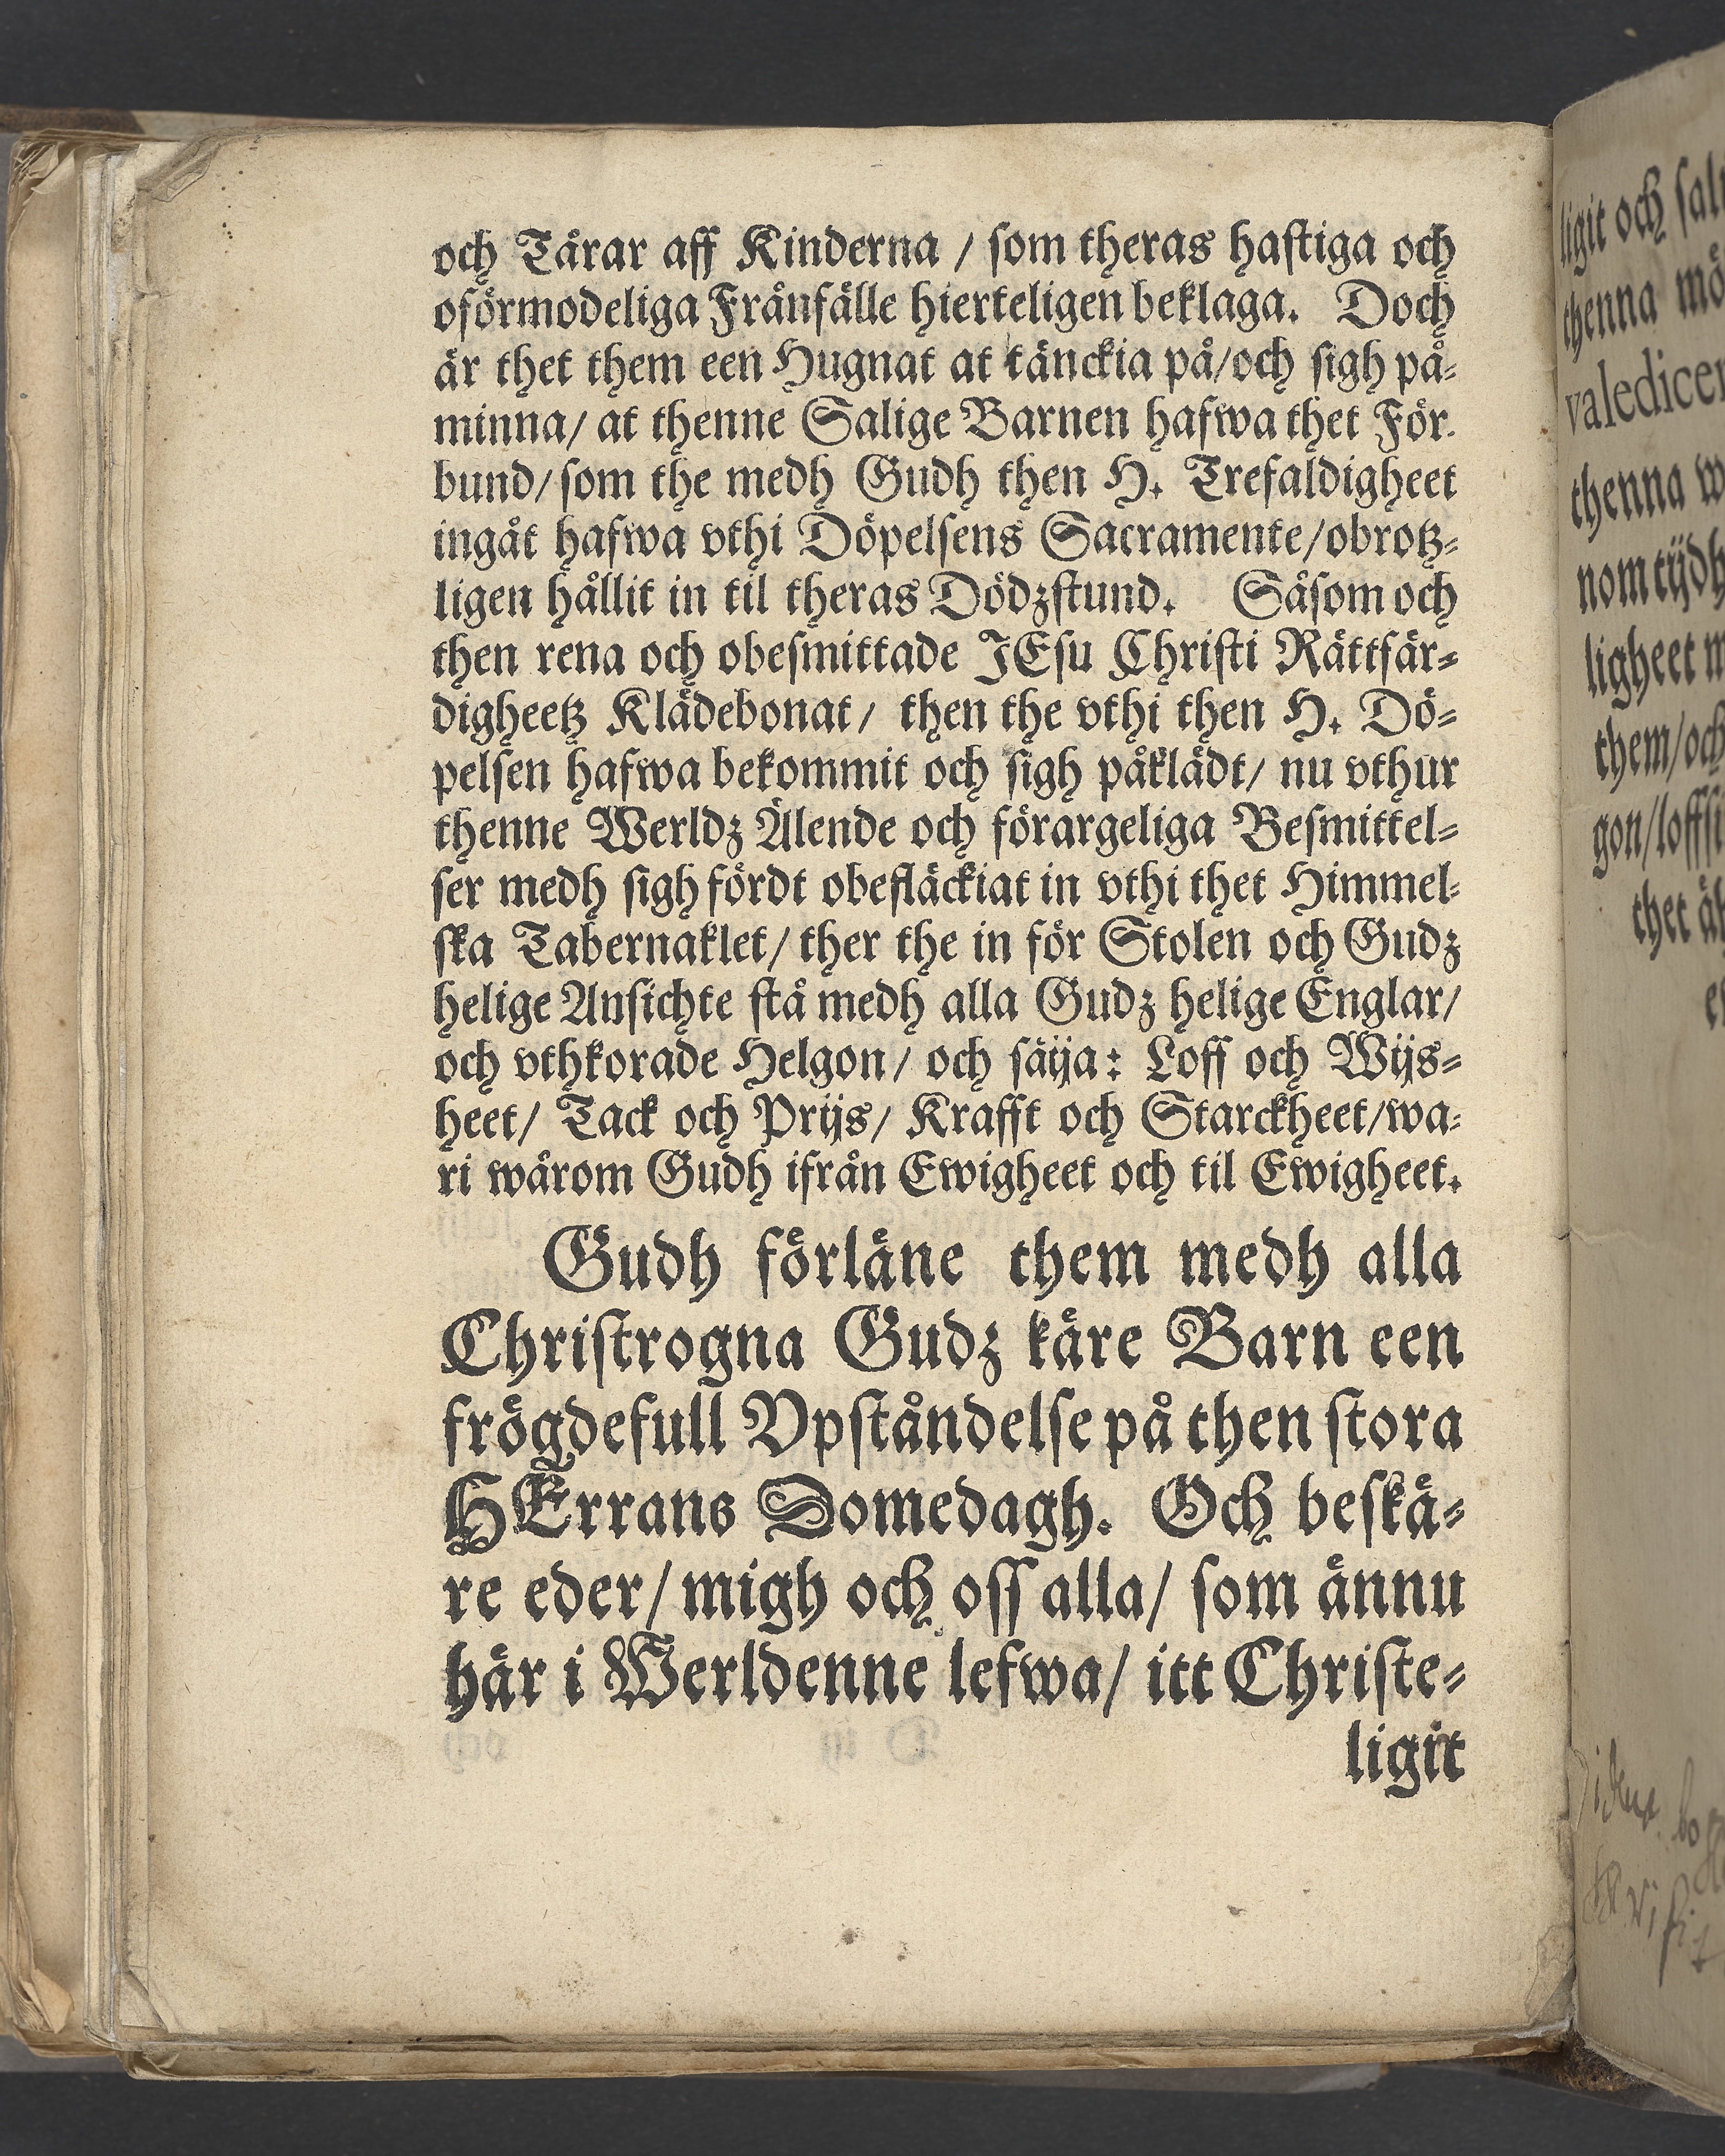 och Tårar aff Kinderna / som theras hastiga och
oförmodeliga Frånfälle hierteligen beklaga. Doch
är thet them een Hugnat at tänckia på/och sigh på-
minna/ at thenne Salige Barnen hafwa thet För-
bund/ som the medh Gudh then H. Trefaldigheet
ingåt hafwa vthi Döpelsens Sacramente/obrotz-
ligen hållit in til theras Dödzstund. Såsom och
then rena och obesmittade JEsu Christi Rättfär-
digheetz Klädebonat/ then the vthi then H. Dö-
pelsen hafwa bekommit och sigh påklädt/ nu vthur
thenne Werldz Älende och förargeliga Besmittel-
ser medh sigh fördt obefläckiat in vthi thet Himmel-
ska Tabernaklet/ ther the in för Stolen och Gudz
helige Ansichte stå medh alla Gudz helige Englar/
och vthkorade Helgon/ och säija: Loff och Wijs-
heet/ Tack och Prijs/ Krafft och Starckheet/wa-
ri wårom Gudh ifrån Ewigheet och til Ewigheet.
Gudh förläne them medh alla
Christrogna Gudz käre Barn een
frögdefull Vpståndelse på then stora
HErrans Domedagh. Och beskä-
re eder/ migh och oss alla/ som ännu
här i Werldenne lefwa/ itt Christe-
ligit
ligit och
thenna
thenna
nom
ligheet
them/och
gon/
thet